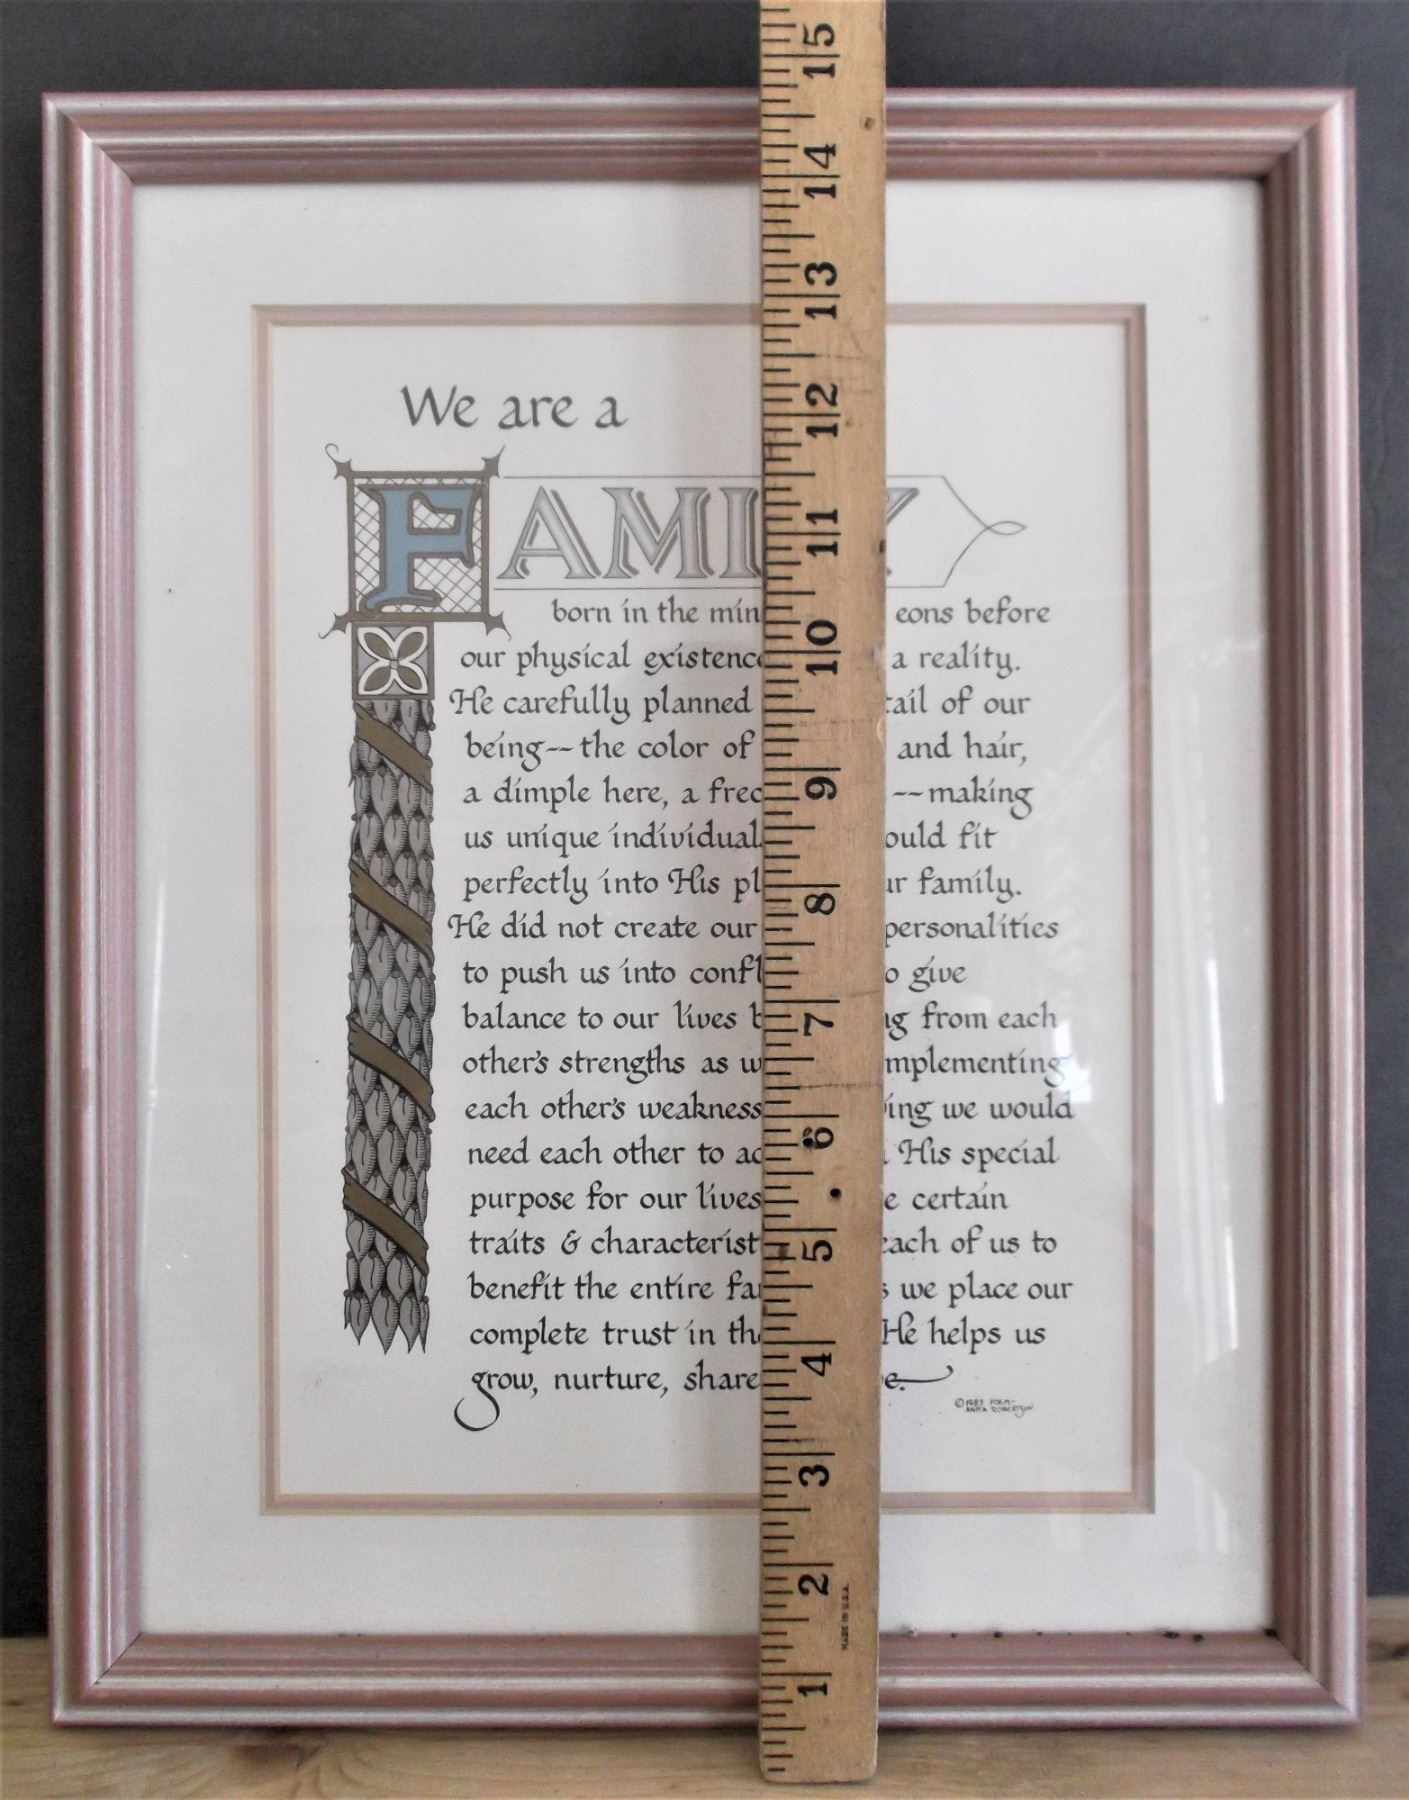 We are a
FAMI Y
born in the min eons before
our physical existence a reality.
He carefully planned tail of our
being--the color of and hair,
a dimple here, a frec --making
us unique individual ould fit
perfectly into His pl ur family.
He did not create our personalities
to push us into confl o give
balance to our lives b ng from each
other's strengths as w mplementing
each other's weakness ing we would
need each other to ac His special
purpose for our lives e certain
traits & characterist each of us to
benefit the entire fa s we place our
complete trust in the He helps us
grow, nurture, share e.
©1983 POEM-
ANITA ROBERTSON
15
14
13
12
11
10
9
8
7
6
5
4
3
2
1
MADE IN U.S.A.